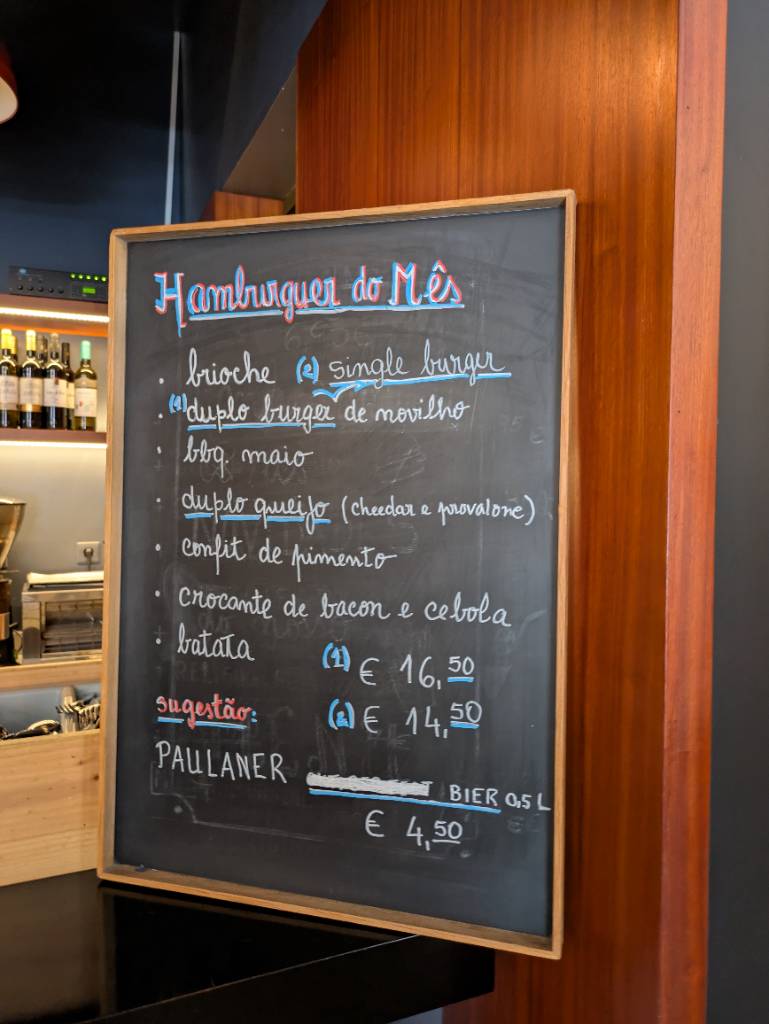 Hamburguer do Mês
· brioche (2) single burger
· (1) duplo burger de novilho
· bbq. maio
· duplo queijo (cheedar e provalone)
· confit de pimento
· crocante de bacon e cebola
· batata (1) € 16,50
sugestão: (2) € 14,50
PAULANER BIER 0,5 L
€ 4,50